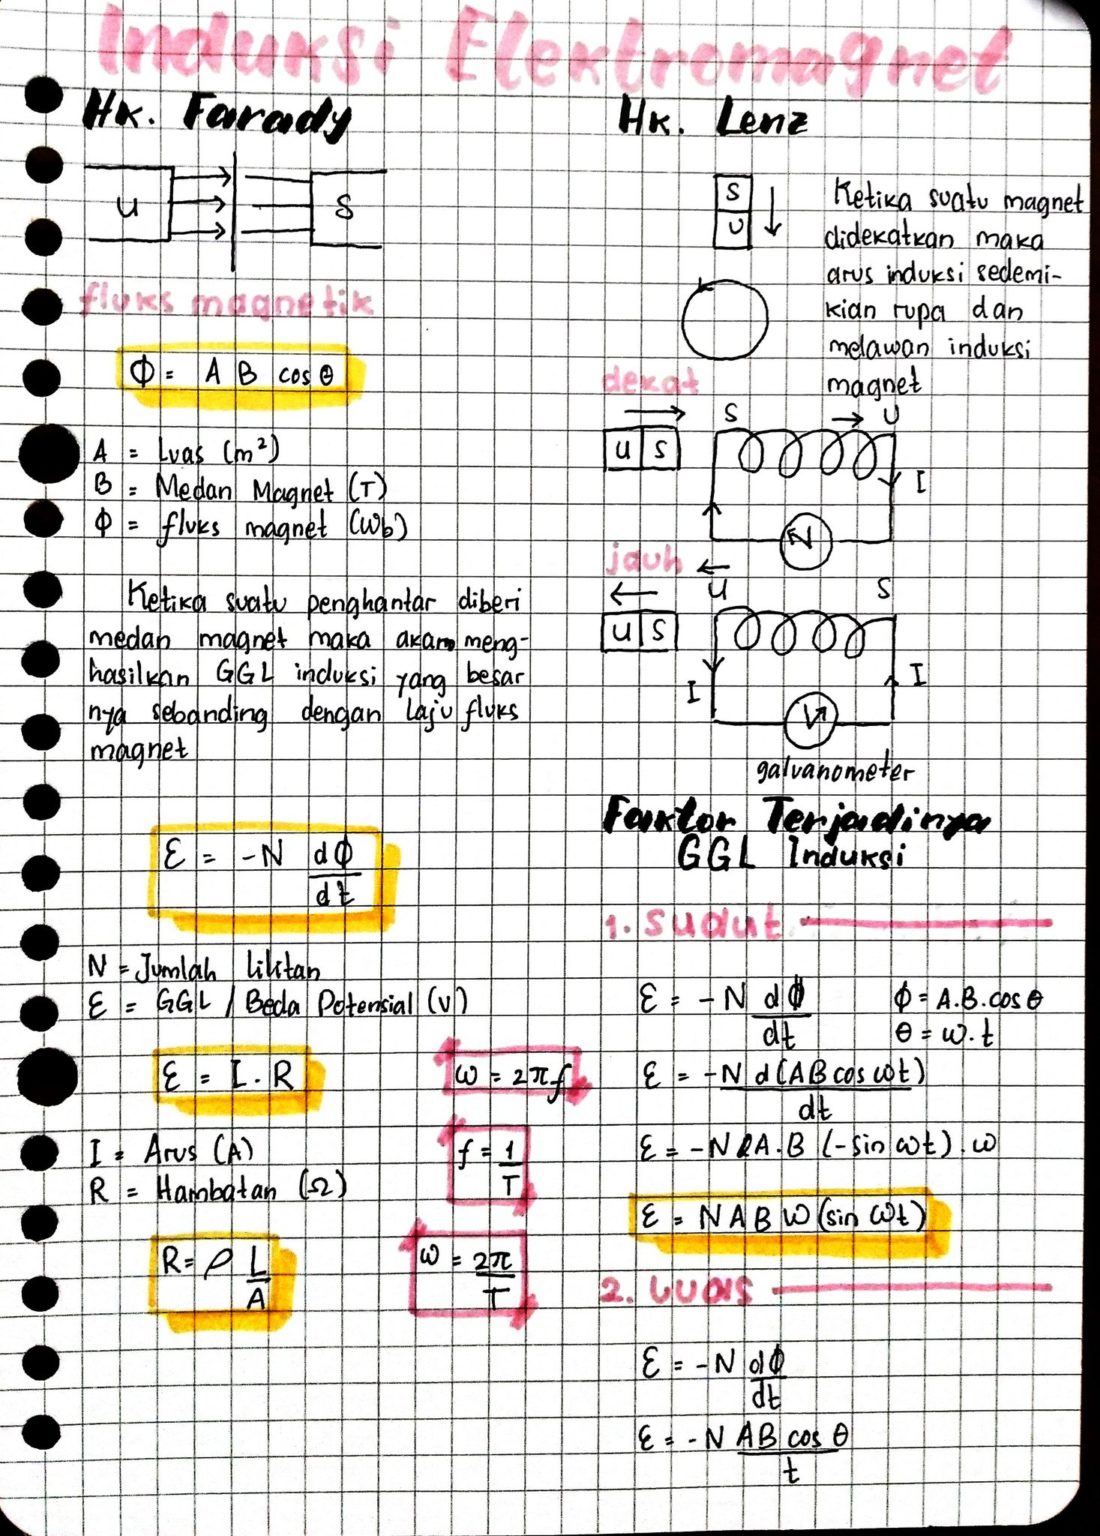 Induksi Elektromagnet
Hk. Farady
U S
fluks magnetik
Φ = A B cos θ
A = Luas (m²)
B = Medan Magnet (T)
Φ = fluks magnet (Wb)
Ketika suatu penghantar diberi
medan magnet maka akan meng-
hasilkan GGL induksi yang besar
nya sebanding dengan laju fluks
magnet
ε = -N dΦ/dt
N = Jumlah lilitan
ε = GGL / Beda Potensial (V)
ε = I . R
I = Arus (A)
R = Hambatan (Ω)
R = ρ L/A
ω = 2πf
f = 1/T
ω = 2π/T
Hk. Lenz
S
U
Ketika suatu magnet
didekatkan maka
arus induksi sedemi-
kian rupa dan
melawan induksi
magnet
dekat
S U
U S
I
N
jauh
U S
U S
I I
V
galvanometer
Faktor Terjadinya
GGL Induksi
1. Sudut
ε = -N dΦ/dt Φ = A.B.cos θ
θ = ω.t
ε = -N d(AB cos ωt)/dt
ε = -N A.B (-sin ωt) . ω
ε = N A B ω (sin ωt)
2. Luas
ε = -N dΦ/dt
ε = -N AB cos θ/t